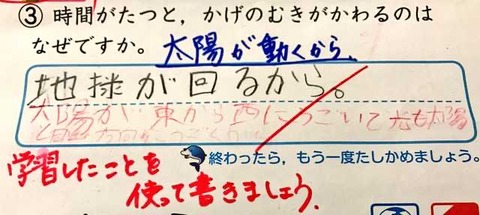 ③ 時間がたつと，かげのむきがかわるのは
なぜですか。
太陽が動くから。
地球が回るから。
太陽が東から西にうごいて
学習したことを
終わったら，もう一度たしかめましょう。
使って書きましょう。